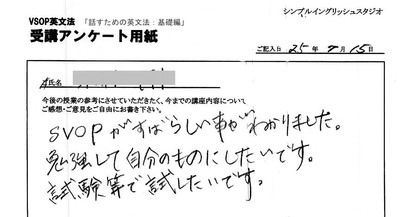 シンプルイングリッシュスタジオ
VSOP英文法 「話すための英文法:基礎編」
受講アンケート用紙
ご記入日 25年9月15日
氏名
今後の授業の参考にさせていただきたく、今までの講座内容について
ご感想・ご意見をご自由にお書き下さい。
SVOPがすばらしい事がわかりました。
勉強して自分のものにしたいです。
試験等で試したいです。